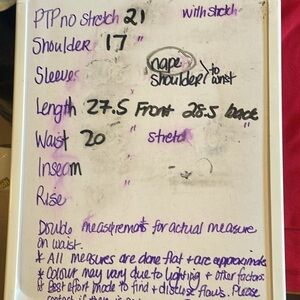 PTP no stretch 21 " with stretch
Shoulder 17 "
nape
Sleeves shoulder to wrist
Length 27.5 Front 28.5 back
Waist 20 " stretch
Inseam "
Rise "
Double measurements for actual measure
on waist.
* All measures are done flat + are approximate
* Colour may vary due to lighting + other factors
* Best effort made to find + disclose flaws. Please